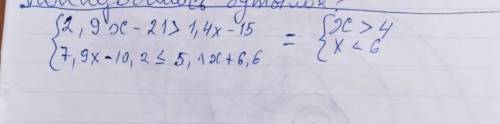 {2,9x-21>1,4x-15 = {x>4
{7,9x-10,2≤5,1x+6,6 {x<6